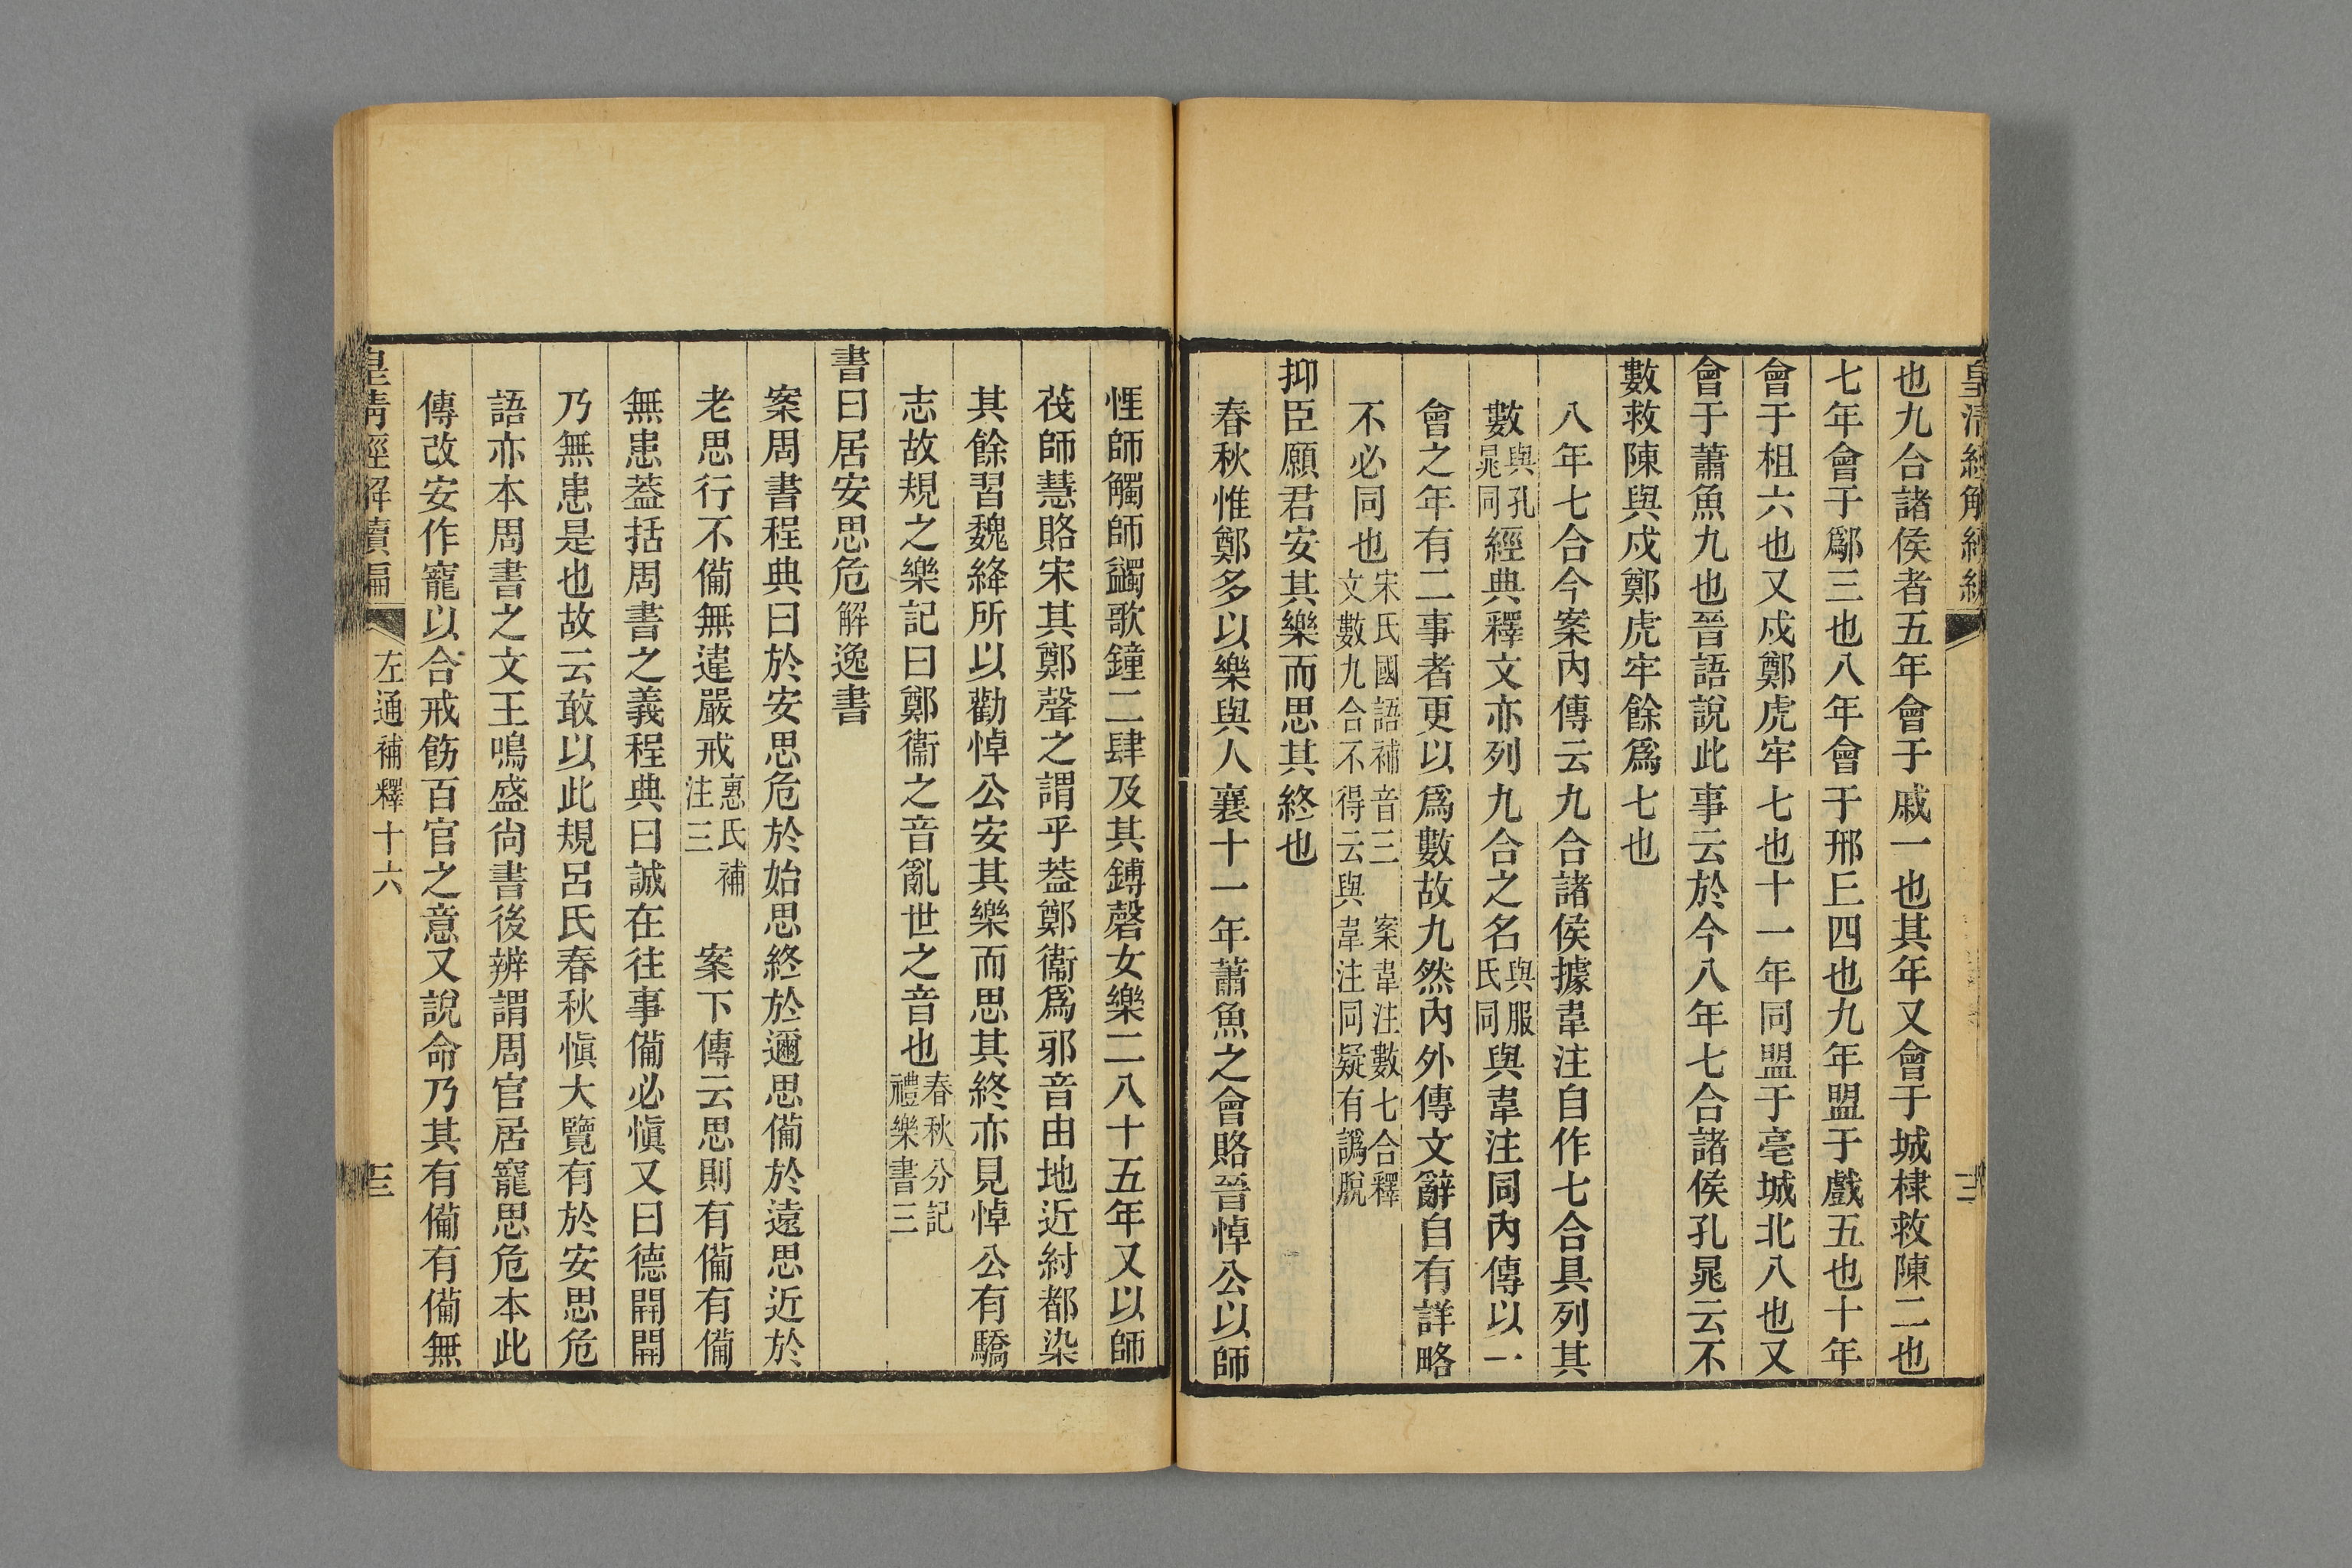 皇清經解續編
也九合諸侯者五年會于戚一也其年又會于城棣救陳二也
七年會于鄬三也八年會于邢丘四也九年盟于戲五也十年
會于柤六也又戍鄭虎牢七也十一年同盟于亳城北八也又
會于蕭魚九也晉語說此事云於今八年七合諸侯孔晁云不
數救陳與戍鄭虎牢餘爲七也
八年七合今案內傳云九合諸侯據韋注自作七合具列其
數與孔晁同經典釋文亦列九合之名與服氏同與韋注同內傳以一
會之年有二事者更以爲數故九然內外傳文辭自有詳略
不必同也宋氏國語補音三 案韋注數七合釋文數九合不得云與韋注同疑有譌脫
抑臣願君安其樂而思其終也
春秋惟鄭多以樂與人襄十一年蕭魚之會賂晉悼公以師
悝師觸師蠲歌鐘二肆及其鎛磬女樂二八十五年又以師
筏師慧賂宋其鄭聲之謂乎葢鄭衞爲邪音由地近紂都染
其餘習魏絳所以勸悼公安其樂而思其終亦見悼公有驕
志故規之樂記曰鄭衞之音亂世之音也春秋分記禮樂書三
書曰居安思危解逸書
案周書程典曰於安思危於始思終於邇思備於遠思近於
老思行不備無違嚴戒惠氏補注三 案下傳云思則有備有備
無患葢括周書之義程典曰誠在往事備必愼又曰德開開
乃無患是也故云敢以此規呂氏春秋愼大覽有於安思危
語亦本周書之文王鳴盛尙書後辨謂周官居寵思危本此
傳改安作寵以合戒飭百官之意又說命乃其有備有備無
皇清經解續編 左通補釋十六